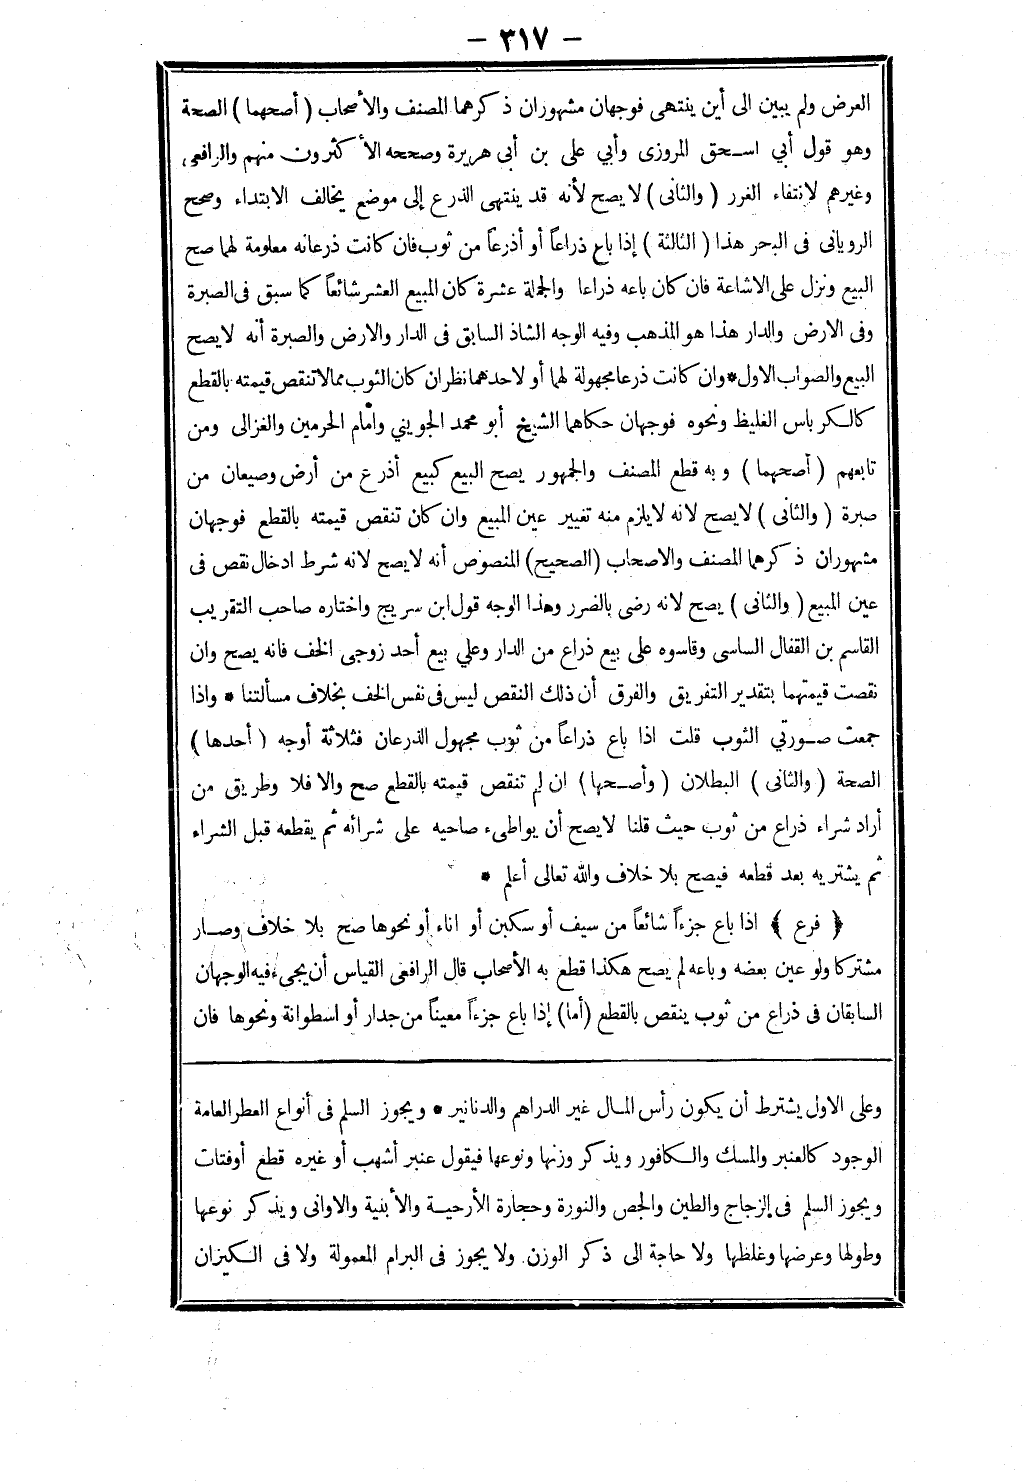 — ٣١٧ —
العرض ولم يبين الى أين ينتهى فوجهان مشهوران ذكرهما المصنف والأصحاب (أصحهما) الصحة
وهو قول أبي اسحق المروزى وأبي على بن أبى هريرة وصححه الأكثرون منهم والرافعى
وغيرهم لانتفاء الغرر (والثانى) لا يصح لأنه قد ينتهى الذرع إلى موضع يخالف الابتداء وصحح
الرويانى فى البحر هذا (الثالثة) إذا باع ذراعاً أو أذرعاً من ثوب فان كانت ذرعانه معلومة لهما صح
البيع ونزل على الاشاعة فان كان باعه ذراعا والجملة عشرة كان المبيع العشر شائعاً كما سبق فى الصبرة
وفى الارض والدار هذا هو المذهب وفيه الوجه الشاذ السابق فى الدار والارض والصبرة أنه لا يصح
البيع والصواب الاول * وان كانت ذرعا مجهولة لهما أو لاحدهما نظر ان كان الثوب مما لا تنقص قيمته بالقطع
كالكرباس الغليظ ونحوه فوجهان حكاهما الشيخ أبو محمد الجويني وامام الحرمين والغزالى ومن
تابعهم (أصحهما) وبه قطع المصنف والجمهور يصح البيع كبيع أذرع من أرض وصيعان من
صبرة (والثانى) لا يصح لانه لا يلزم منه تغيير عين المبيع وان كان تنقص قيمته بالقطع فوجهان
مشهوران ذكرهما المصنف والاصحاب (الصحيح) المنصوص أنه لا يصح لانه شرط ادخال نقص فى
عين المبيع (والثانى) يصح لانه رضى بالضرر وهذا الوجه قول ابن سريج واختاره صاحب التقريب
القاسم بن القفال الساسى وقاسوه على بيع ذراع من الدار وعلي بيع أحد زوجى الخف فانه يصح وان
نقصت قيمتهما بتقدير التفريق والفرق أن ذلك النقص ليس فى نفس الخف بخلاف مسألتنا * واذا
جمعت صورتي الثوب قلت اذا باع ذراعاً من ثوب مجهول الذرعان فثلاثة أوجه (أحدها)
الصحة (والثانى) البطلان (وأصحها) ان لم تنقص قيمته بالقطع صح والا فلا وطريق من
أراد شراء ذراع من ثوب حيث قلنا لا يصح أن يواطىء صاحبه على شرائه ثم يقطعه قبل الشراء
ثم يشتريه بعد قطعه فيصح بلا خلاف والله تعالى أعلم *
﴿ فرع ﴾ اذا باع جزءاً شائعاً من سيف أو سكين أو اناء أو نحوها صح بلا خلاف وصار
مشتركا ولو عين بعضه وباعه لم يصح هكذا قطع به الأصحاب قال الرافعى القياس أن يجىء فيه الوجهان
السابقان فى ذراع من ثوب ينقص بالقطع (أما) إذا باع جزءاً معيناً من جدار أو اسطوانة ونحوها فان
وعلى الاول يشترط أن يكون رأس المال غير الدراهم والدنانير * ويجوز السلم فى أنواع العطر العامة
الوجود كالعنبر والمسك والكافور ويذكر وزنها ونوعها فيقول عنبر أشهب أو غيره قطع أو فتات
ويجوز السلم فى الزجاج والطين والجص والنورة وحجارة الأرحية والأبنية والاوانى ويذكر نوعها
وطولها وعرضها وغلظها ولا حاجة الى ذكر الوزن ولا يجوز فى البرام المعمولة ولا فى الكيزان